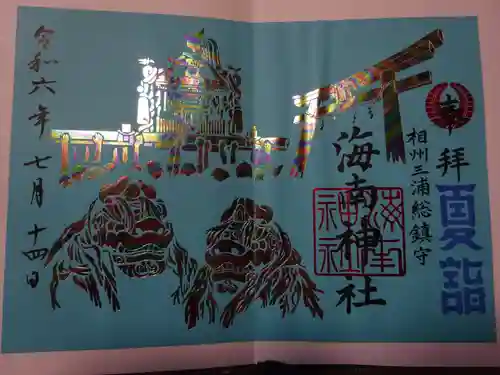 奉拝
夏詣
相州三浦総鎮守
海南神社
令和六年七月十四日